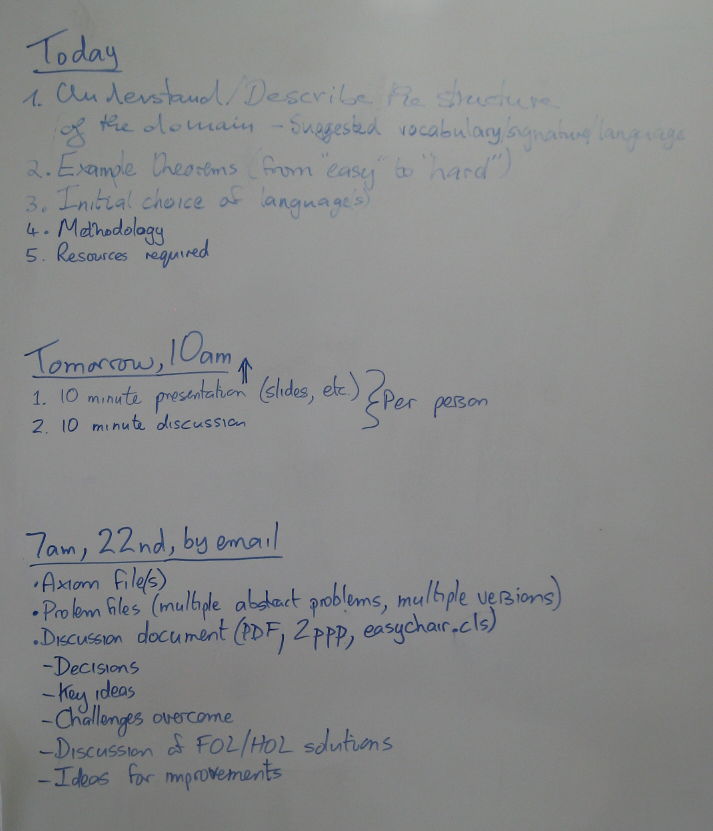 Today
1. Understand/Describe the structure
of the domain - Suggested vocabulary/signature/language
2. Example theorems (from "easy" to "hard")
3. Initial choice of language(s)
4. Methodology
5. Resources required
Tomorrow, 10am ⇑
1. 10 minute presentation (slides, etc.) } Per person
2. 10 minute discussion
7am, 22nd, by email
• Axiom file(s)
• Problem files (multiple abstract problems, multiple versions)
• Discussion document (PDF, 2ppp, easychair.cls)
- Decisions
- Key ideas
- Challenges overcome
- Discussion of FOL/HOL solutions
- Ideas for improvements